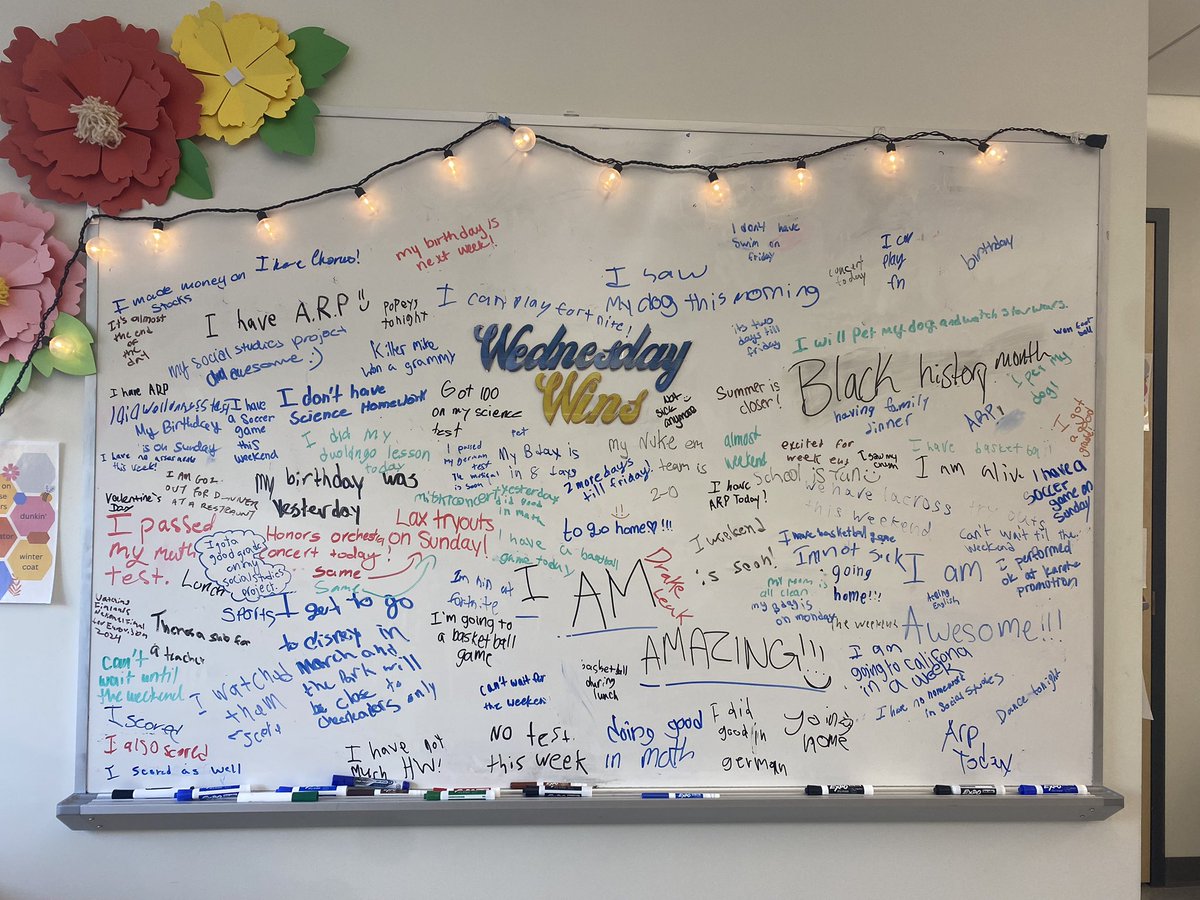 I made money on
stocks
I have Chorus!
my birthday is
next week!
I saw
My dog this morning
I don't have
Swim on
friday
concert
today
I can
play
fn
birthday
It's almost
the end
of
the
I have A.R.P
Popeys
tonight
I can play fortnite!
its two
days till
friday
I will Pet my dog and watch star wars.
won foot
ball
my social studies project
awesome :)
Killer Mike
won a grammy
Wednesday
Wins
Black history month
I pet my
dog!
I have ARP
My Birthday
is on Sunday
I have
a Soccer
game
this
weekend
I don't have
Science Homework
Got 100
on my science
test
Not
sick
anymore
Summer is
closer!
having family
dinner
ARP!
I
got
a
good
grade
I have no
this week!
I did my
duolingo lesson
today
I passed
my German
test
The musical
is soon
pet
My Bdax is
in 8 days
my Nuke em
team is
2-0
almost
weekend
excited for
week end
I saw my
I have basketball
I am alive
I have a
soccer
game on
Sunday
I AM GOING
OUT FOR DINNER
AT A RESTRAUNT
my birthday was
Yesterday
2 more days
till friday!
I have
ARP Today!
School is fun!
We have lacross try outs
this weekend
Valentine's
Day
I passed
my math
test.
I got a
good grade
on my
social studies
project.
Honors orchestra
concert today!
Same
Same
Lax tryouts
on Sunday!
concert yesterday
did good
in math
to go home!!!
I have a basketball
game today
weekend
is soon!
I have basketball game
I'm not sick
I'm going
home!!!
Can't wait til the
weekend
I performed
ok at karate
promotion
Lunch
Sports
I'm him at
fortnite
Drake
Leak
I AM
AMAZING!!!
my mom is
all clean
my Bday is
on monday
the weekend
I am
Awesome!!!
Acting
English
Watching
Finland's
National Final
for Eurovision
2024
Theres a sub for
a teacher
I get to go
to disney in
march and
the Park will
be close to
cheerleaders only
I'm going to
a basketball
game
can't
wait until
the weekend
I watched
them
score
can't wait for
the weekend
basketball
during
lunch
I am
going to califona
in a week
I have no homework
in Social studies
Dance tonight
I scored
I also scored
I scored as well
I have not
Much HW!
NO test
this week
doing good
in math
I did
good in
german
going
home
Arp
Today
dunkin'
winter
coat
EXPO
EXPO
EXPO